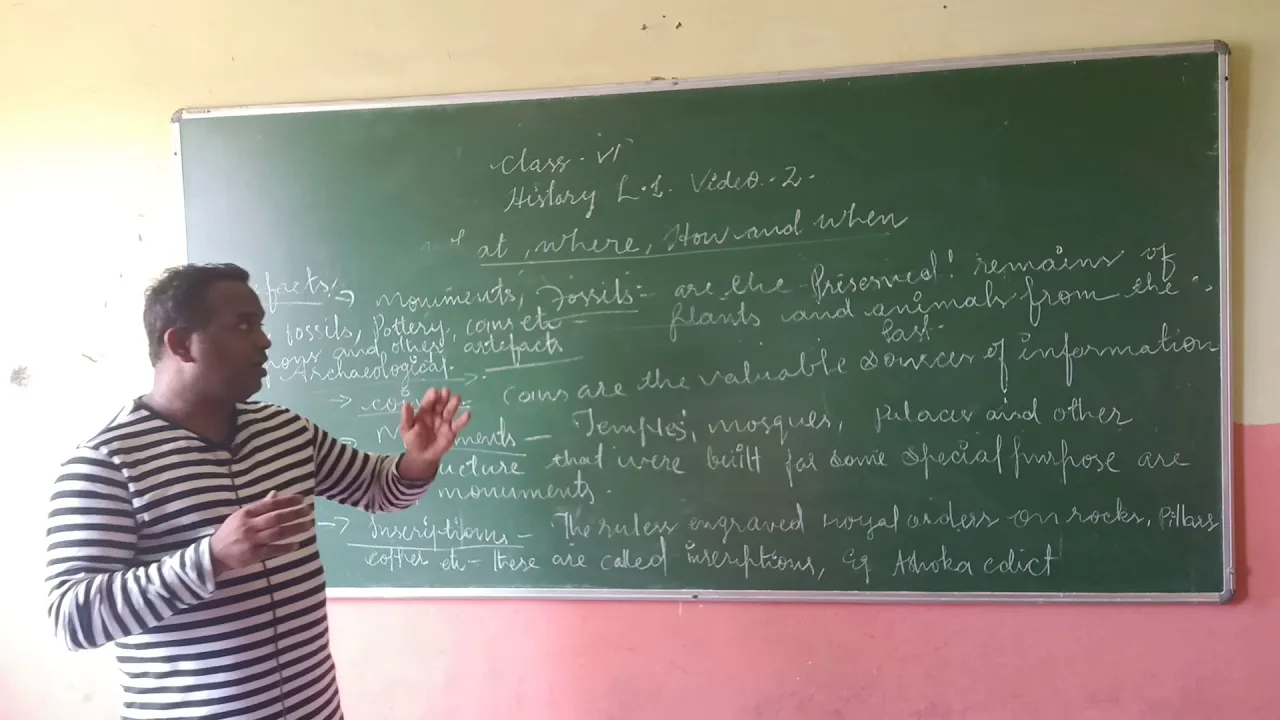 Class - VI
History L.1. Video - 2.
at, where, How and when
facts:→ monuments, Fossils:- are the Preserved remains of
fossils, Pottery, coins etc - Plants and animals from the
and other artefacts Past.
Archaeological.
→ coins are the valuable sources of information
→ ments - Temples, mosques, Palaces and other
ucture that were built for some special purpose are
monuments.
→ Inscriptions - The rulers engraved royal orders on rocks, Pillars
copper etc - these are called inscriptions, Eg Ashoka edict